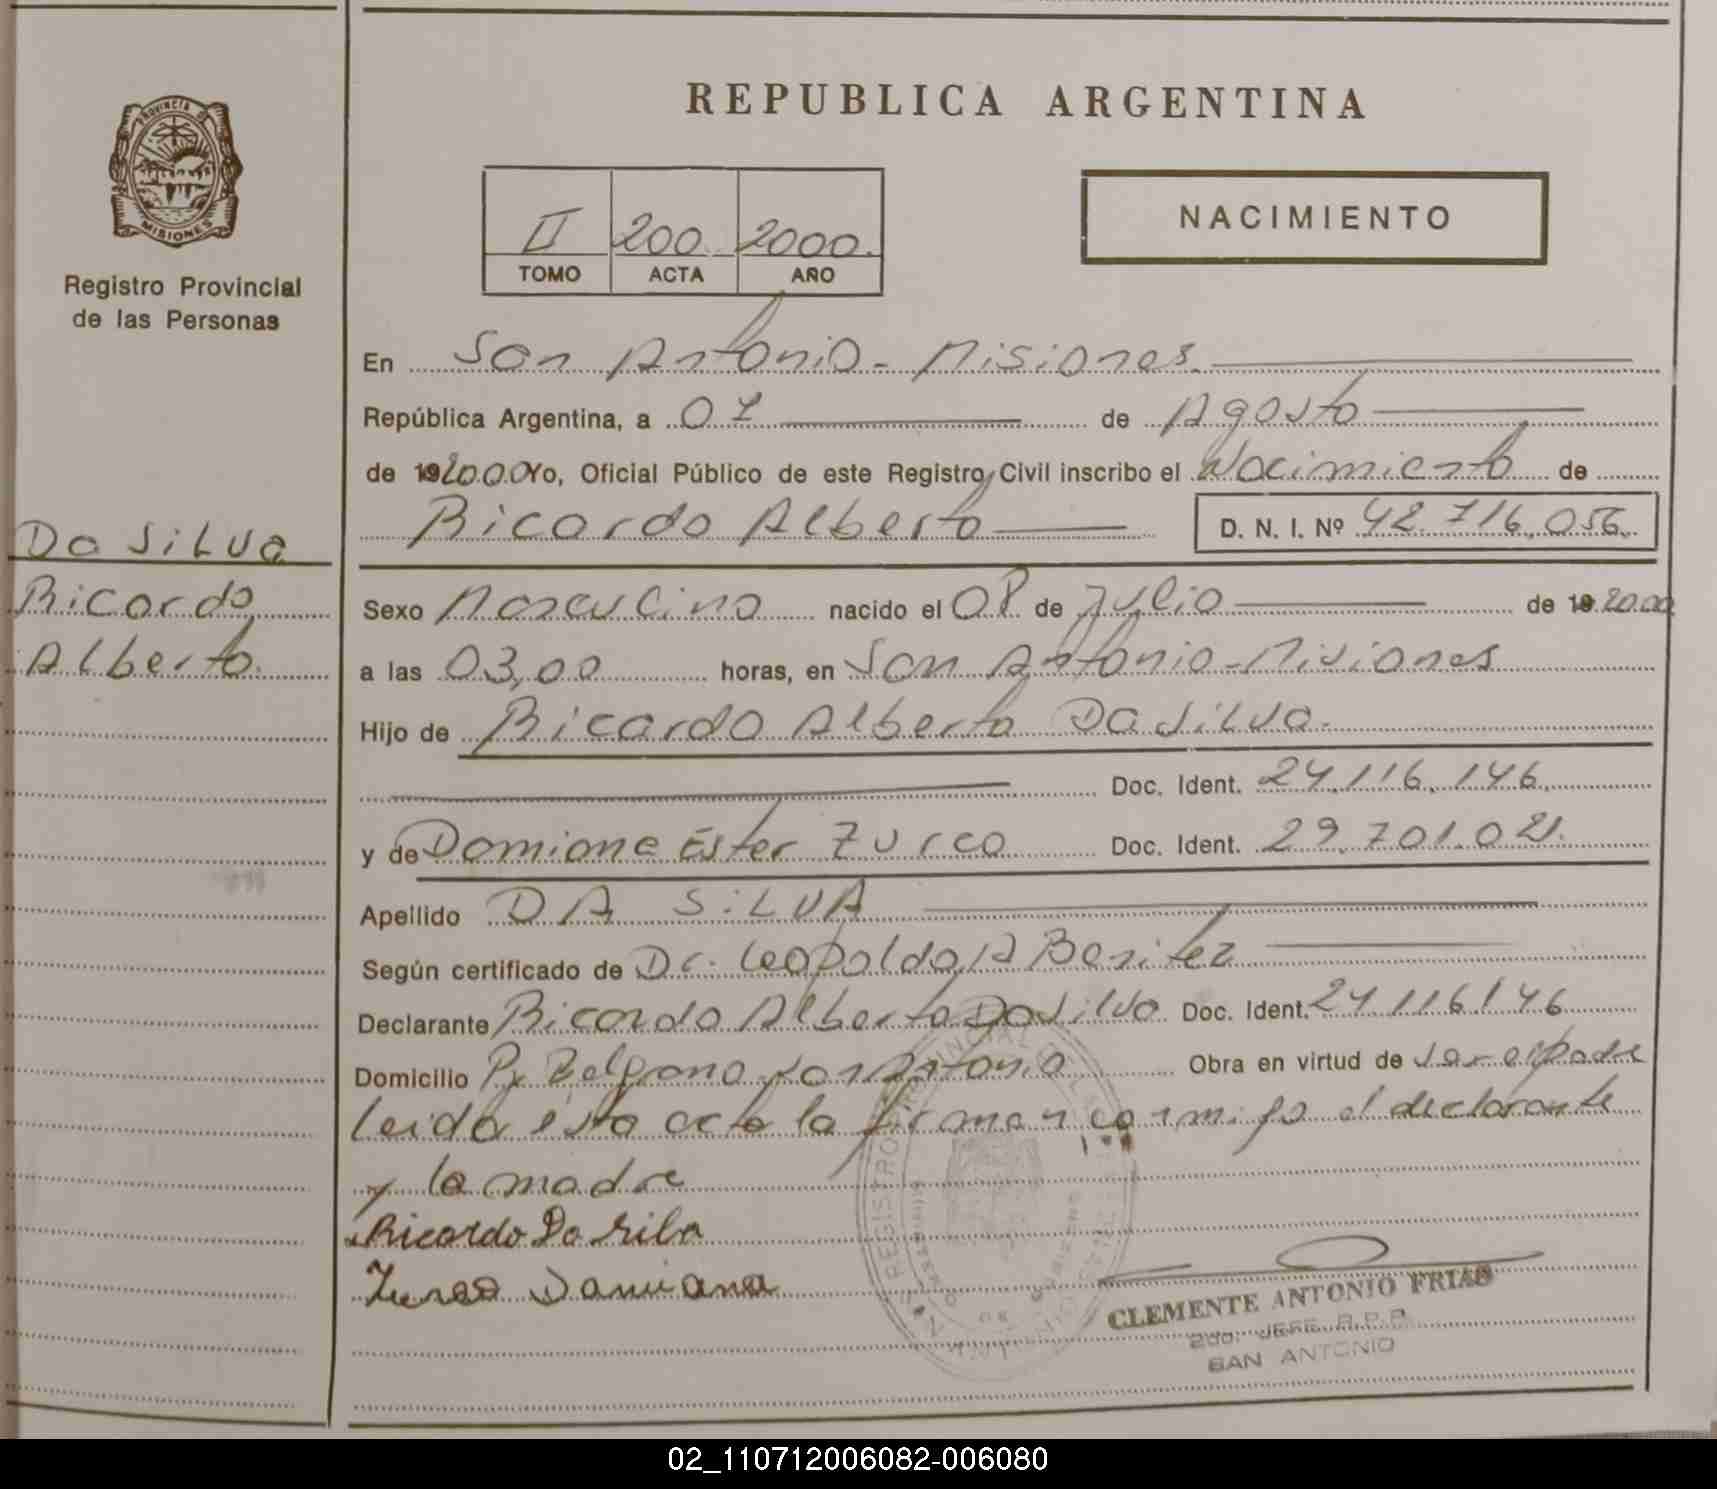 REPUBLICA ARGENTINA
PROVINCIA DE MISIONES
Registro Provincial
de las Personas
II 200 2000
TOMO ACTA AÑO
NACIMIENTO
Da Silva
Ricardo
Alberto
En San Antonio - Misiones
República Argentina, a 07 de Agosto
de 192000 Yo, Oficial Público de este Registro Civil inscribo el Nacimiento de
Ricardo Alberto D. N. I. Nº 42.716.056
Sexo Masculino nacido el 08 de Julio de 19 2000
a las 03,00 horas, en San Antonio - Misiones
Hijo de Ricardo Alberto Da Silva.
Doc. Ident. 24.116.146
y de Damiana Ester Zurco Doc. Ident. 29.701.021
Apellido DA SiLVA
Según certificado de Dr. Leopoldo A Benitez
Declarante Ricardo Alberto Da Silva Doc. Ident. 24.116.146
Domicilio Pje Belgrano San Antonio Obra en virtud de ser el padre
leida esta acta la firman conmigo el declarante
y la madre
Ricardo Da Silba
Damiana
CLEMENTE ANTONIO FRIAS
2do. JEFE R.P.P.
SAN ANTONIO
02_110712006082-006080